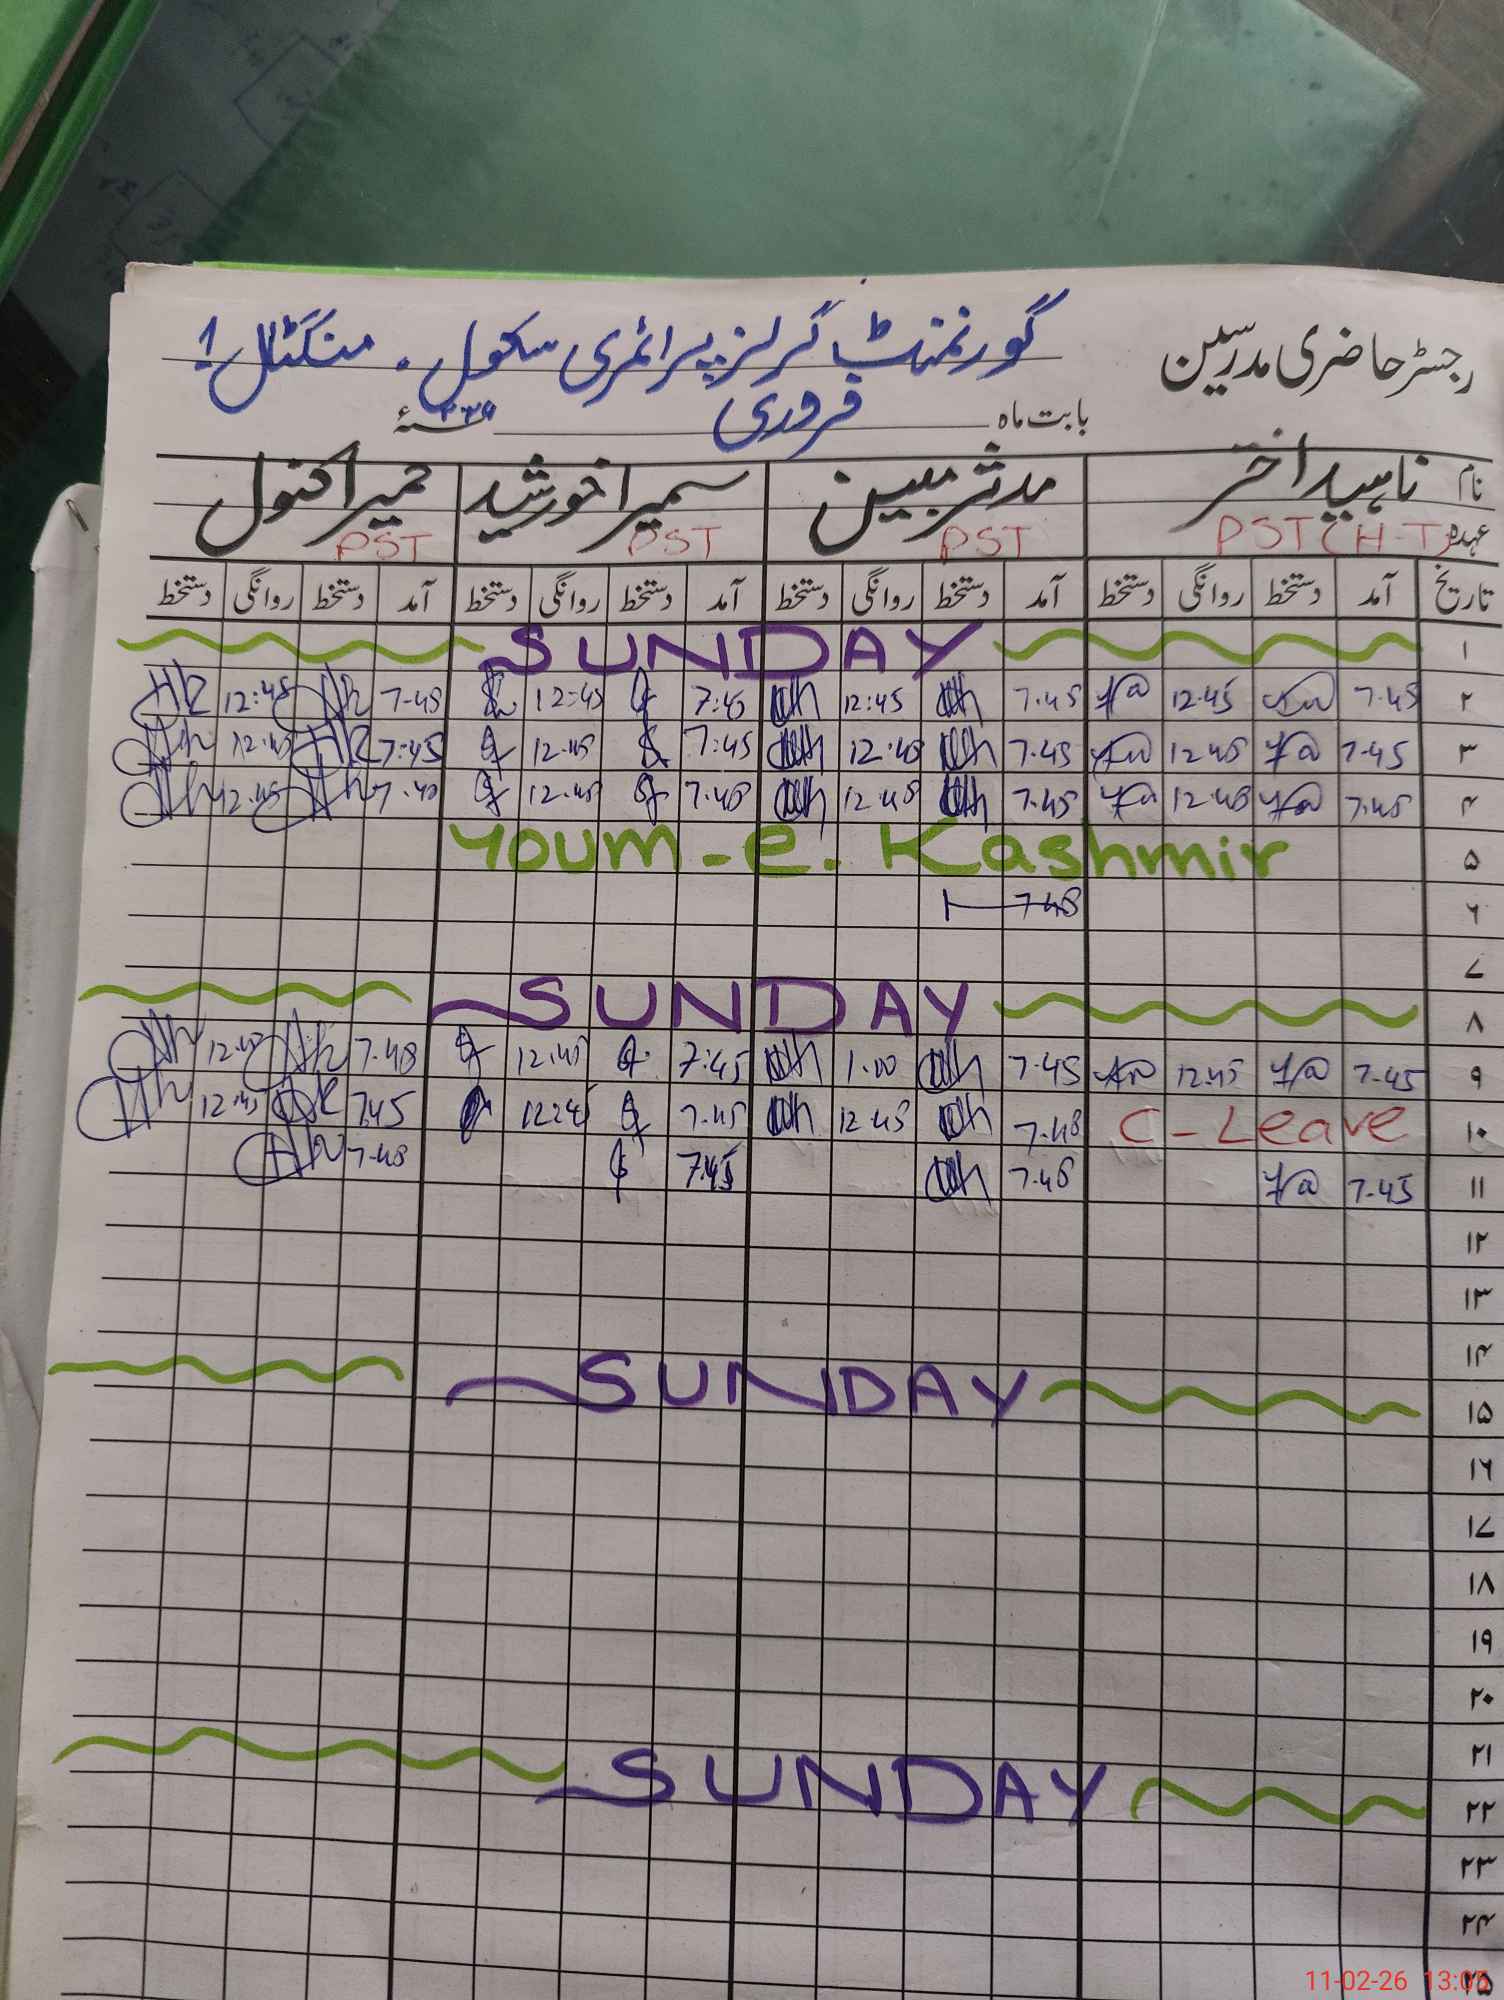 رجسٹر حاضری مدرسین
گورنمنٹ گرلز پرائمری سکول . منکٹال 1
بابت ماہ فروری ۲۰۲۶ء
نام ناہید اختر مدثر مبین سمیرا خورشید حمیرا کنول
عہدہ PST (H-T) PST PST PST
تاریخ آمد دستخط روانگی دستخط آمد دستخط روانگی دستخط آمد دستخط روانگی دستخط آمد دستخط روانگی دستخط
۱ SUNDAY
۲ 7.45 12.45 7.45 12:45 7:45 12:45 7-45 12:45
۳ 7.45 12.45 7.45 12.45 7:45 12.45 7:45 12.45
۴ 7.45 12.45 7.45 12.45 7.45 12.45 7.40 12.45
۵ Youm-e. Kashmir
۶ 7.45
۷
۸ SUNDAY
۹ 7.45 12.45 7.45 1.00 7:45 12:45 7.45 12.40
۱۰ C-Leave 7.45 12.45 7.45 12:45 7.45 12.45
۱۱ 7.45 7.45 7.45 7.45
۱۲
۱۳
۱۴
۱۵ SUNDAY
۱۶
۱۷
۱۸
۱۹
۲۰
۲۱
۲۲ SUNDAY
۲۳
۲۴
۲۵
11-02-26 13:05